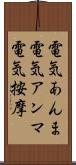 電気あんま
電気アンマ
電気按摩